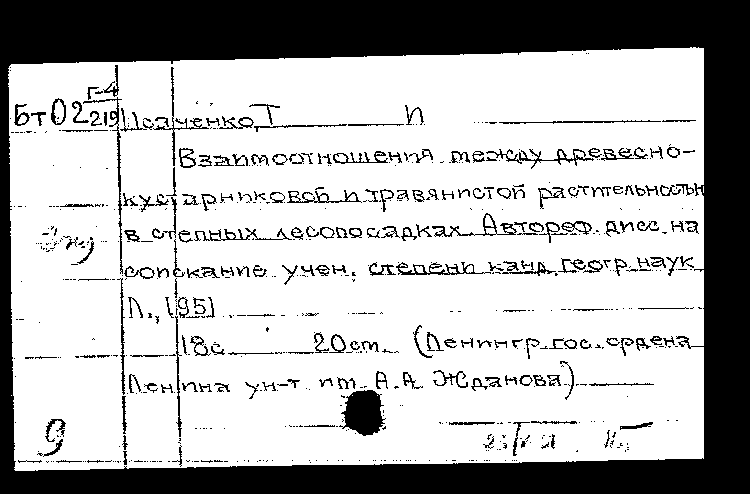 Г-4
Бт02 219 Исаченко, Т П
Взаимоотношения между древесно-
кустарниковой и травянистой растительностью
в степных лесопосадках. Автореф. дисс. на
соискание учен. степени канд. геогр. наук
Л., 1951
18с. 20см. (Ленингр. гос. ордена
Ленина ун-т им. А.А. Жданова)
9